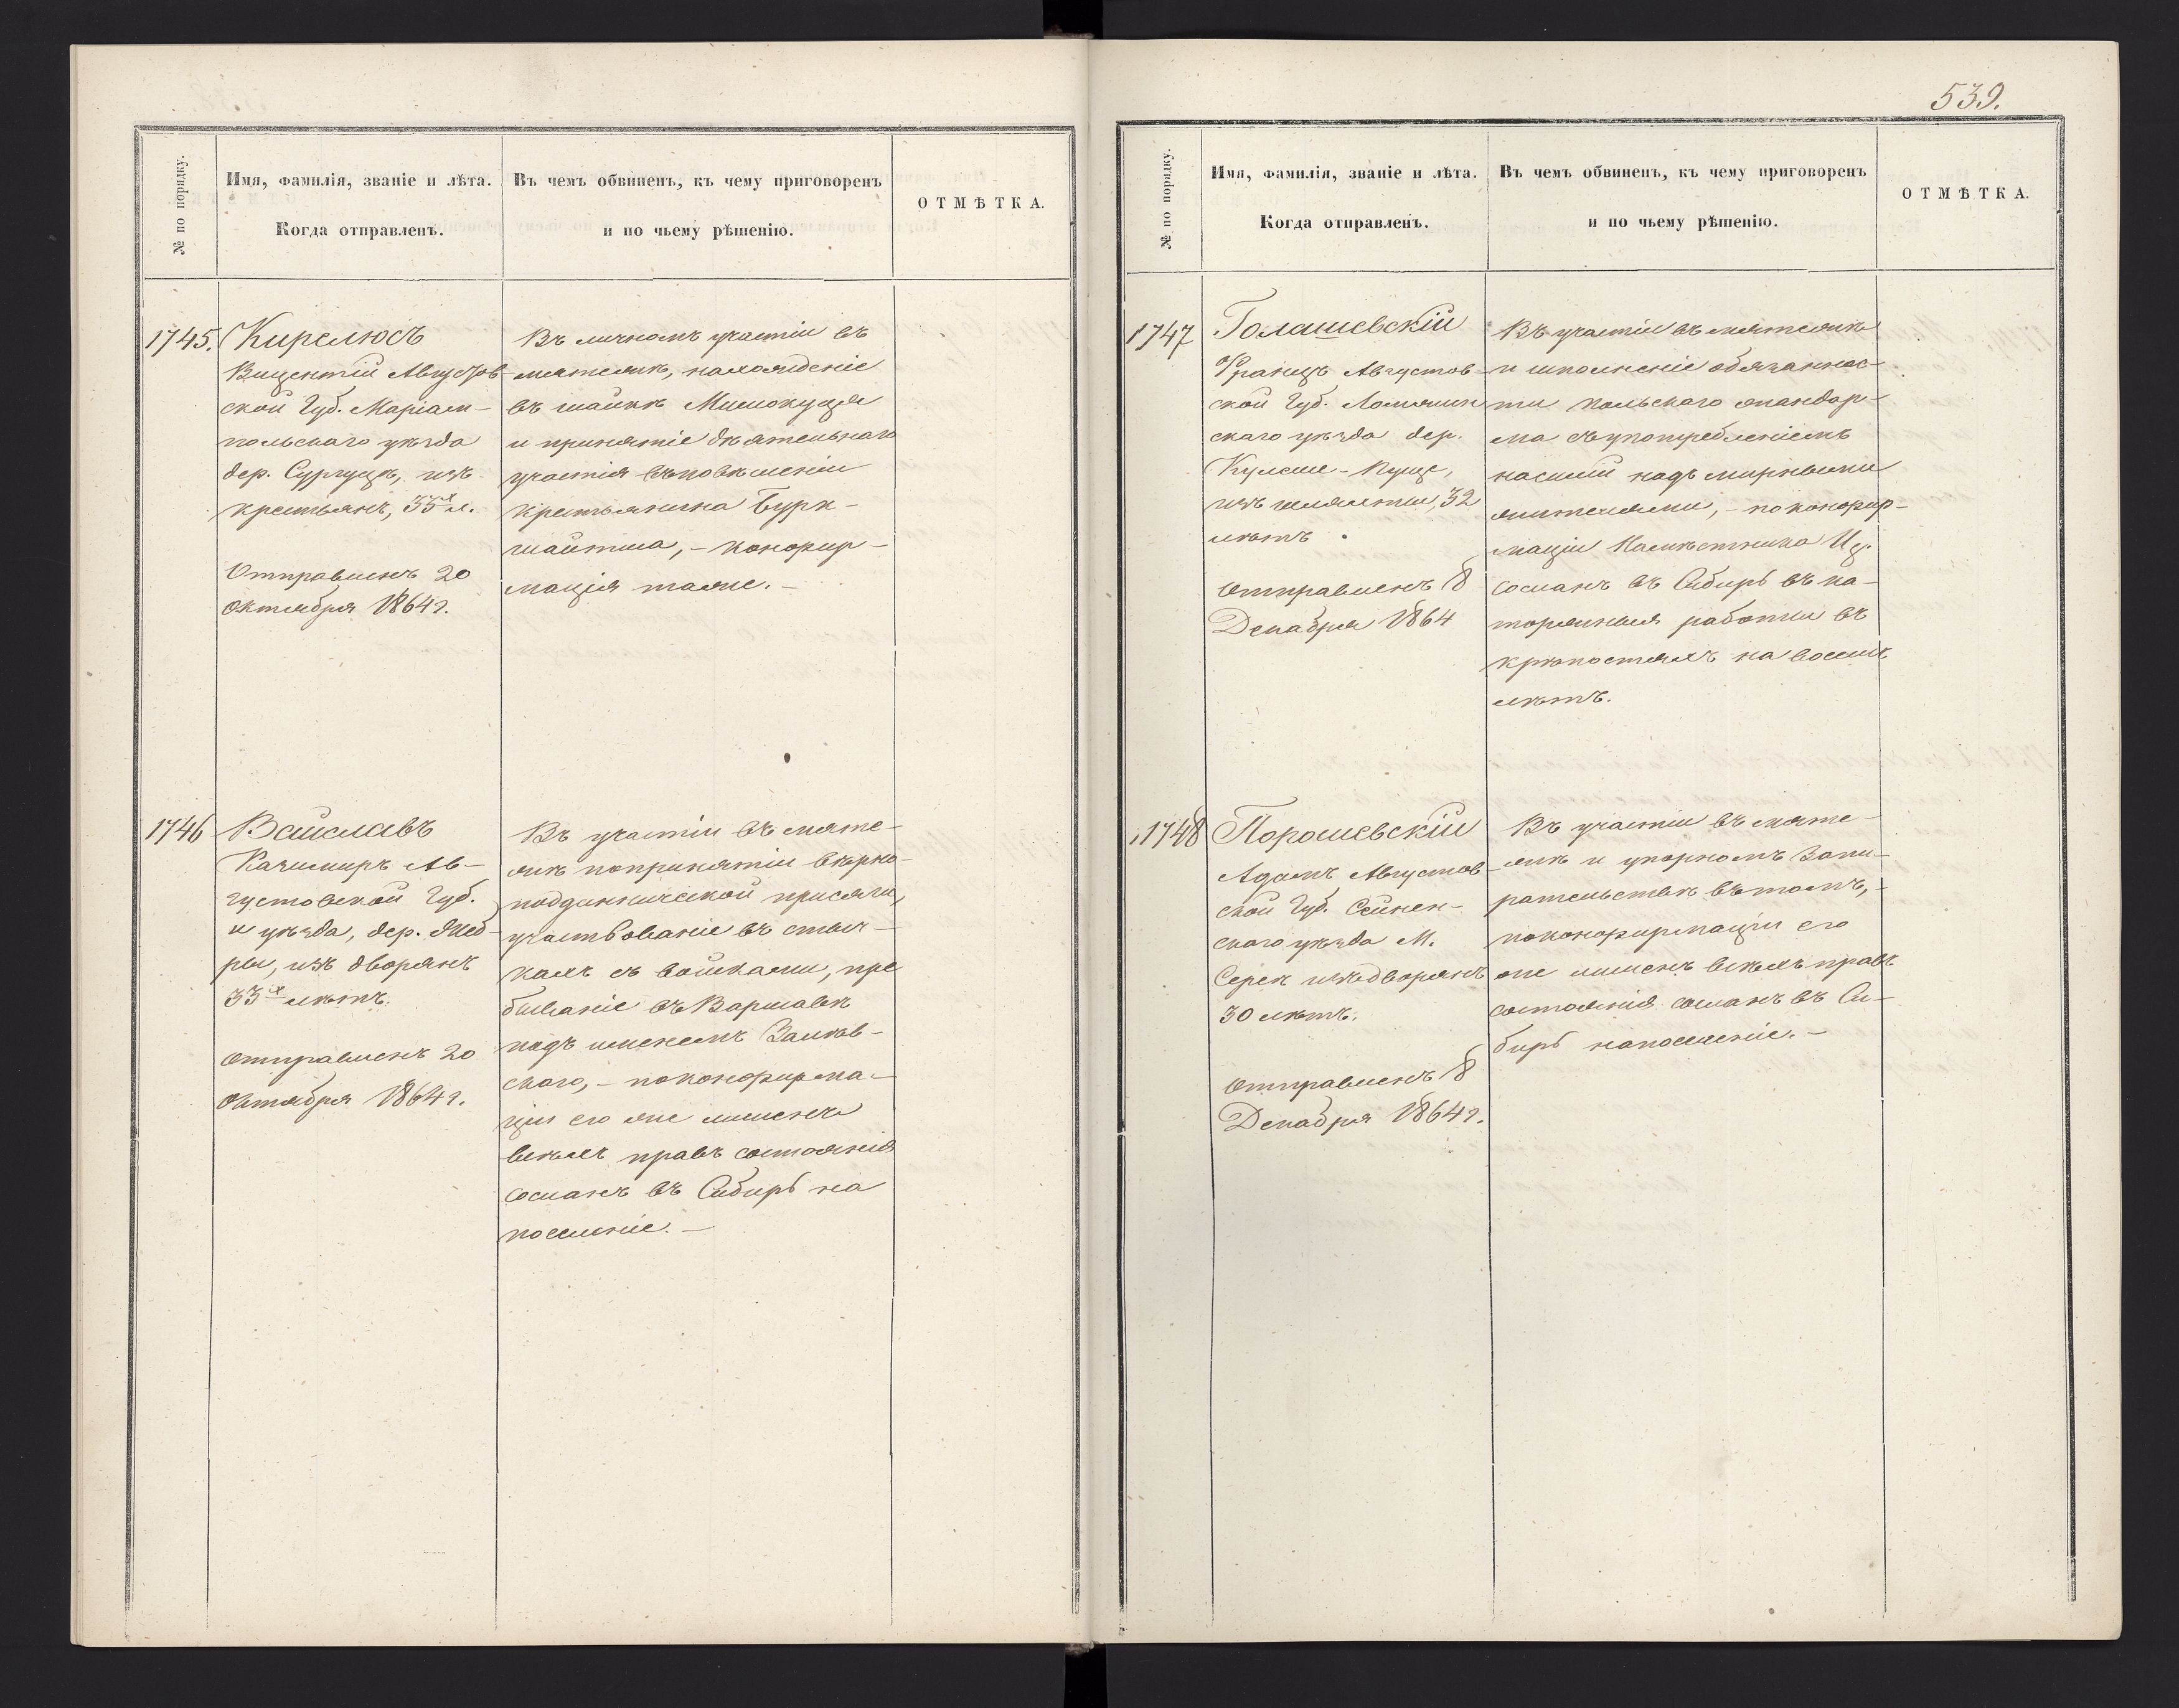 539.
№ по порядку.
Имя, фамилія, званіе и лѣта.
Когда отправленъ.
Въ чемъ обвиненъ, къ чему приговоренъ
и по чьему рѣшенію.
ОТМѢТКА.
1745.
Кирелюсъ
Вицентій Августов-
ской Губ. Маріам-
польскаго уѣзда
дер. Сургуцъ, изъ
крестьянъ, 35 л.
Отправленъ 20
Октября 1864 г.
Въ личномъ участіи въ
мятежѣ, нахожденіе
въ шайкѣ
и принятіе дѣятельнаго
участія въ повѣшеніи
крестьянина Бурк-
шайтиса, – конфир-
мація таже. –
1746
Вайславъ
Казимиръ Ав-
густовской Губ.
и уѣзда, дер.
ры, изъ дворянъ
33х лѣтъ.
Отправленъ 20
Октября 1864 г.
Въ участіи въ мяте-
жѣ по принятіи вѣрно-
подданнической присяги,
участвованіе въ стыч-
кахъ съ войсками, пре
бываніе въ Варшавѣ
подъ именемъ
скаго, – по конфирма-
ціи его же лишенъ
всѣхъ правъ состоянія
сосланъ въ Сибирь на
поселеніе. –
№ по порядку.
Имя, фамилія, званіе и лѣта.
Когда отправленъ.
Въ чемъ обвиненъ, къ чему приговоренъ
и по чьему рѣшенію.
ОТМѢТКА.
1747
Голашевскій
Францъ Августов-
ской Губ. Ломжин
скаго уѣзда дер.
Кулеше-
изъ шляхты, 32
лѣтъ
Отправленъ 8
Декабря 1864
Въ участіи въ мятежѣ
и исполненіе обязаннос-
ти польскаго жандар-
ма съ употребленіемъ
насилій надъ мирными
жителями, – по конфир-
маціи Намѣстника Ц.
сосланъ въ Сибирь въ ка-
торжныя работы въ
крѣпостяхъ на восемь
лѣтъ.
1748
Порошевскій
Адамъ Августов-
ской Губ. Сейнен-
скаго уѣзда М.
Сереи изъ дворянъ
30 лѣтъ.
Отправленъ 8
Декабря 1864 г.
Въ участіи въ мяте-
жѣ и упорномъ запи-
рательствѣ въ томъ, –
по конфирмаціи его
же лишенъ всѣхъ правъ
состоянія сосланъ въ Си-
бирь на поселеніе. –